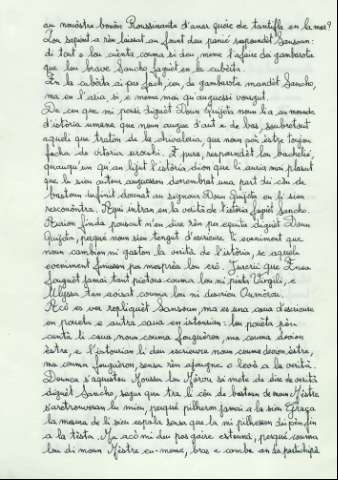 au nouòstre bouòn Roussinanto d'anar quère de tantifla en la mar?
Lou sapient a rèn laissat au founs dou pouse respoundèt Sansoun:
di tout e lou cuènta couma si dèu meme l'afaire da gambarota
que lou brave Sancho faguèt en la cubèrta.
En la cubèrta ai pas fach, ren de gambarota mandèt Sancho,
ma en l'aria, si, e meme mai qu'auguessi vourgut.
Da çen que mi pensi diguèt Doun Quijoto noun li a au mounde
d'istòria umana que noun ague d'aut e de bas, soubretout
aqueli que traton de la chivalaria, que noun pòn èstre toujou
facha de vitoria
E pura, respoundèt lou bacheliè,
quauqu'un qu'an legit l'istòria dion que li auria mai plasut
que lu sieu autour auguesson demembrat una part dai còu de
bastoun infinit dounat au signour Doun Quijoto en li sieu
rescontra. Aquì intran en la verità de l'istòria faguèt Sancho.
Aurion finda pouscut n'en dire rèn per equità diguèt Doun
Quijoto, perqué noun sien tengut d'escriure li eveniment que
noun cambion ni gaston la verità de l'istòria, se aqueli
eveniment finisson per mespreis lou erò. Jurerii que Enea
fouguèt jamai tant pietous couma lou ni pinta Virgili, e
Ulyssa tant avisat couma lou ni descriéu Oumèrou.
Acò es ver repliquèt Sansoun ma es una causa d'escriure
en pouèta e autra causa en istourian: lou pouèta pòu
cantà li causa noun couma fouguèron ma couma devion
èstre, e l'istourian li dèu escriure noun couma devon èstre,
ma couma fouguèron, sensa rèn ajougne o levà a la verità.
Dounca s'aquestou Moussu lou Mòrou si mete da dire de verità
diguèt Sancho, segur que tra li còu de bastoun de moun Mèstre
s'atrouveran lu mieu, perqué pilheron jamai a la sieu Graça
la mesura de li sieu espala sensa que la mi pilhesson dai pèn fin
a la tèsta. Ma acò mi dèu pas gaire estounà, perqué couma
lou di moun Mèstre eu-meme, bras e camba en la participà